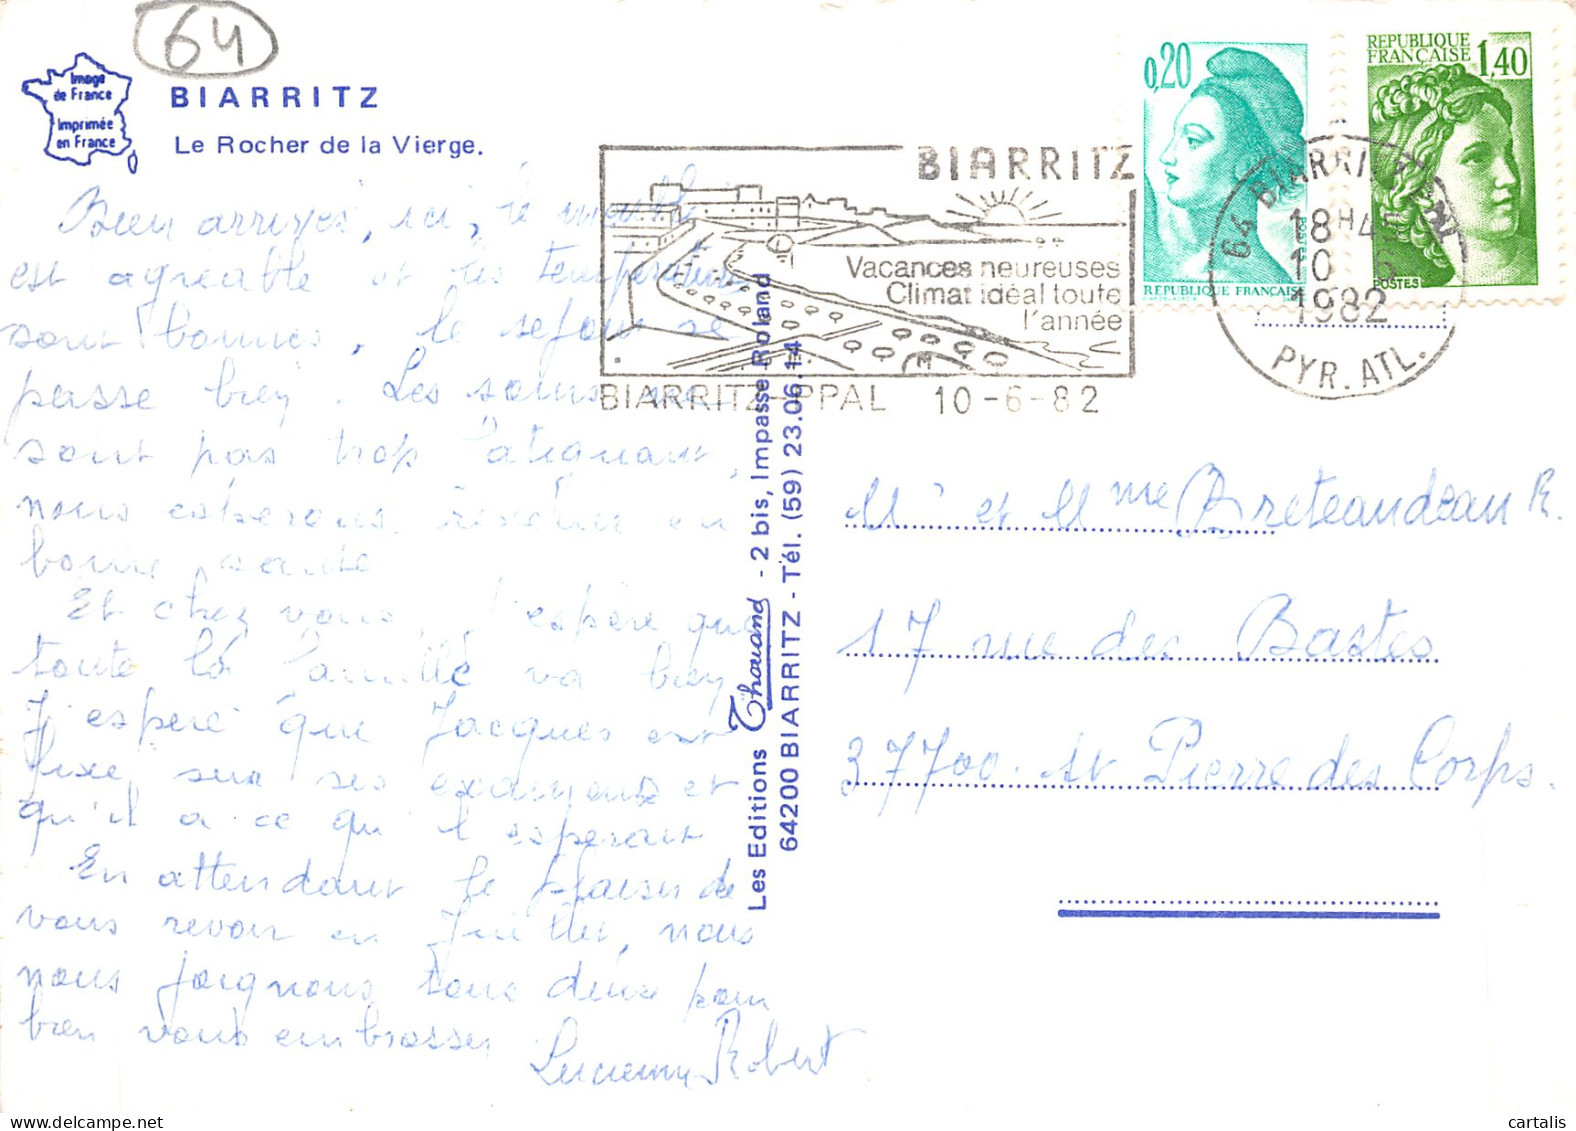 64
Image
de France
Imprimée
en France
BIARRITZ
Le Rocher de la Vierge.
0,20
REPUBLIQUE FRANÇAISE
REPUBLIQUE
FRANÇAISE 1,40
POSTES
BIARRITZ
Vacances heureuses
Climat idéal toute
l'année
BIARRITZ-PPAL 10-6-82
64 BIARRITZ
18H45
10 6
1982
PYR. ATL.
Bien arrivés, ici,
est agreable et les temperatures
sont bonnes, le sejour se
passe bien. Les soins ne
sont pas trop fatiguant,
nous esperons rentrer en
bonne sante
Et chez vous, j'espère que
toute la famille va bien
J'espere que Jacques est
fixe sur ses examens et
qu'il a ce qu'il esperait
En attendant le plaisir de
vous revoir en Juillet, nous
nous joignons tous deux pour
bien vous embrasser
Lucienne Robert
Les Editions Thouand - 2 bis, Impasse Roland
64200 BIARRITZ - Tél. (59) 23.06.14
Mr et Mme Breteaudeau R.
17 rue des Bastes
37700. St Pierre des Corps.
cartalis